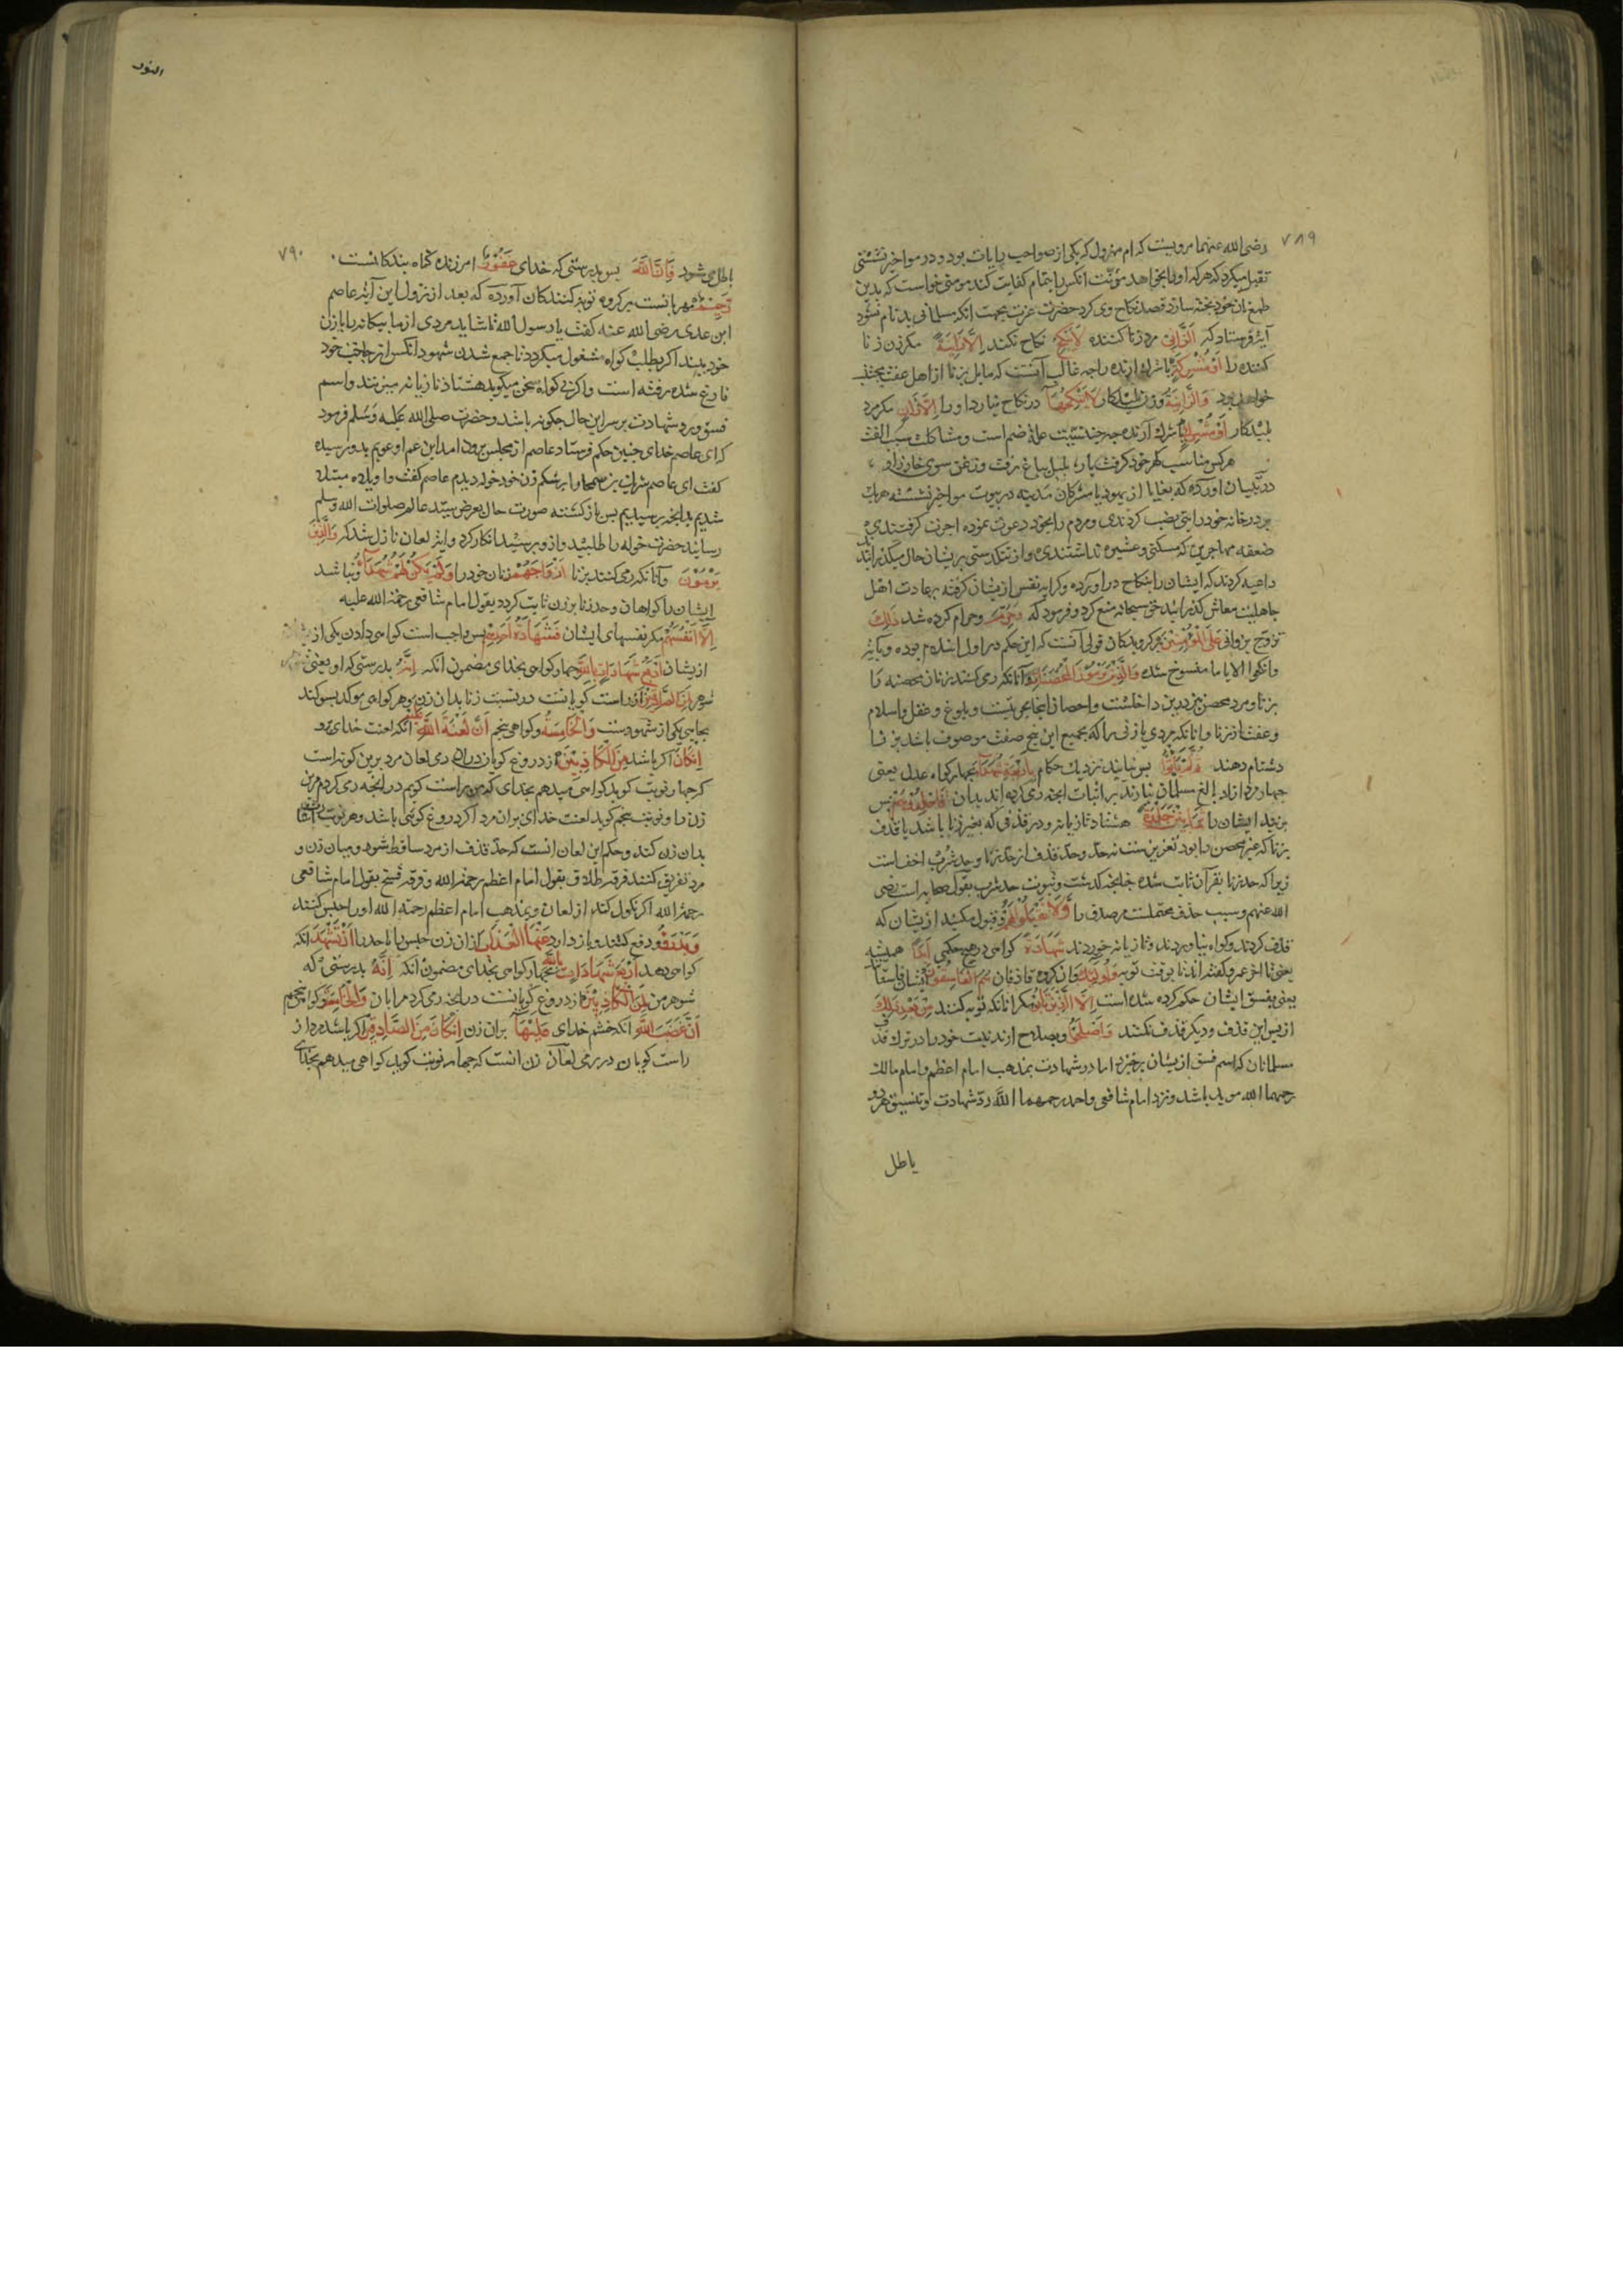 ٧٨٩
رضی الله عنهما مرویست که ام مهزول که یکی از صواحب رایات بود و در مواخیر نشستی
تقبل میکرد که هر که او را بخواهد مؤنت انکس را بتمام کفایت کند مومنی خواست که بدین
طمع نان خود پخته سازد قصد نکاح وی کرد حضرت عزت بجهت انکه مسلمانی بدنام نشود
آیة فرستاد که اَلزَّانِی مرد زنا کننده لَا یَنْکِحُ نکاح نکند اِلَّا زَانِیَةً مکر زن زنا
کننده را اَوْ مُشْرِکَةً یا شرك ارنده را چه غالب آنست که مایل بزنا از اهل عفت مجتنب
خواهد بود وَالزَّانِیَةُ و زن پلیدکار لَا یَنْکِحُهَا در نکاح نیارد او را اِلَّا زَانٍ مکر مرد
پلیدکار اَوْ مُشْرِكٌ یا شرك آرنده چه جنسیت علة ضم است و مشاکلت سبب الفت
هر کس مناسب کهر خود کرفت یار بلبل بباغ رفت و زغن سوی خار زار
در تبیان اورده که بغایا از یهود یا مشرکان مدینه در بیوت مواخیر نشسته هر یك
بر در خانه خود رایتی نصب کردندی و مردم را بخود دعوت نموده اجرت کرفتندی
ضعفه مهاجرین که مسکنی و عشیره نداشتندی و از تنکدستی پریشان حال میکذرانیدند
داعیه کردند که ایشان را بنکاح در آورده و کرایه نفس از یشان کرفته بر عادت اهل
جاهلیت معاش کذرانند حق سبحانه منع کرد و فرمود که وَحُرِّمَ و حرام کرده شد ذٰلِكَ
تزوج زوانی عَلَی الْمُؤْمِنِینَ بر کرویدکان قولی آنست که این حکم در اول اسلام بوده و بآیة
وانکحوا الایامی منسوخ شده وَالَّذِینَ یَرْمُونَ الْمُحْصَنَاتِ و آنانکه رمی کنند زنان محصنه را
بزنا و مرد محصن نیز درین داخلست و احصان اینجا حریتست و بلوغ و عقل و اسلام
و عفت از زنا و انانکه مردی یا زنی را که بجمیع این پنج صفت موصوف باشد بزنا
دشنام دهند ثُمَّ لَمْ یَأْتُوا پس نیایند نزدیك حکام بِاَرْبَعَةِ شُهَدَاءَ بچهار کواه عدل یعنی
چهار مرد ازاد بالغ مسلمان نیارند بر اثبات انچه رمی کرده اند بدان فَاجْلِدُوهُمْ پس
بزنید ایشان را ثَمَانِینَ جَلْدَةً هشتاد تازیانه و در قذفی که بغیر زنا باشد یا قذف
بزنا که غیر محصن را بود تعزیرست نه حد وحد قذف از حد زنا و حد شرب اخف است
زیرا که حد زنا بقرآن ثابت شده چنانچه کذشت و ثبوت حد شرب بقول صحابه است رضی
الله عنهم و سبب حذف محتملست مر صدق را وَلَا تَقْبَلُوا لَهُمْ و قبول مکنید از یشان که
قذف کردند و کواه نیاوردند و تازیانه خوردند شَهَادَةً کواهی در هیچ حکمی اَبَدًا همیشه
یعنی تا اخر عمر و کفته‌اند تا بوقت توبه وَاُولٰئِكَ و ان کروه قاذفان هُمُ الْفَاسِقُونَ ایشان فاسقانند
یعنی بفسق ایشان حکم کرده شده است اِلَّا الَّذِینَ تَابُوا مکر انانکه توبه کنند مِنْ بَعْدِ ذٰلِكَ
از پس این قذف و دیکر قذف نکنند وَاَصْلَحُوا و بصلاح ارند نیت خود را در ترك قذف
مسلمانان که اسم فسق از یشان برخیزد اما رد شهادت بمذهب امام اعظم و امام مالك
رحمهما الله موبد باشد و نزد امام شافعی و احمد رحمهما الله رد شهادت و تفسیق هر دو
باطل
النور
٧٩٠
باطل می‌شود فَاِنَّ اللّٰهَ پس بدرستی که خدای غَفُورٌ امرزنده کناه بندکانست
رَحِیمٌ مهربانست بر کروه توبه کنندکان آورده که بعد از نزول این آیة عاصم
ابن عدی رضی الله عنه کفت یا رسول الله شاید مردی از ما بیکانه را با زن
خود بیند اکر بطلب کواه مشغول میکردد تا جمع شدن شهود آنکس از حاجت خود
فارغ شده رفته است و اکر بی کواه سخن میکوید هشتاد تازیانه میزنند و اسم
فسق و رد شهادت بر سر این حال چکونه باشد و حضرت صلی الله علیه وسلم فرمود
که ای عاصم خدای چنین حکم فرستاد عاصم از مجلس بیرون امد ابن عم او عویمر بدو رسیده
کفت ای عاصم شریك بن سحما را بر شکم زن خود خوله دیدم عاصم کفت واویلاه مبتلا
شدیم بدانچه پرسیدیم پس بازکشته صورت حال بعرض سید عالم صلوات الله وسلم
رسانید حضرت خوله را طلبید و از و پرسید انکار کرد و آیة لعان نازل شد که وَالَّذِینَ
یَرْمُونَ و آنانکه رمی کنند بزنا اَزْوَاجَهُمْ زنان خود را وَلَمْ یَکُنْ لَهُمْ شُهَدَاءُ و نباشد
ایشان را کواهان و حد زنا بر زن ثابت کردد بقول امام شافعی رحمة الله علیه
اِلَّا اَنْفُسُهُمْ مکر نفسهای ایشان فَشَهَادَةُ اَحَدِهِمْ پس واجب است کواهی دادن یکی از یشان
از یشان اَرْبَعُ شَهَادَاتٍ بِاللّٰهِ چهار کواهی بخدای مضمون انکه اِنَّهُ بدرستی که او یعنی
شوهر لَمِنَ الصَّادِقِینَ از راست کویانست در نسبت زنا بدان زن و هر کواهی موکد بسوکند
بجای یکی از شهودست وَالْخَامِسَةُ و کواهی پنجم اَنَّ لَعْنَةَ اللّٰهِ عَلَیْهِ انکه لعنت خدای برو
اِنْ کَانَ اکر باشد مِنَ الْکَاذِبِینَ از دروغ کویان دران رمی لعان مرد برین کونه است
که چهار نوبت کوید کواهی میدهم بخدای که من راست کویم در انچه رمی کردم این
زن را و نوبت پنجم کوید لعنت خدای بران مرد اکر دروغ کوی باشد و هر نوبت اشارت
بدان زن کند و حکم این لعان انست که حد قذف از مرد ساقط شود و میان زن و
مرد تفریق کنند فرقه طلاق بقول امام اعظم رحمه الله و فرقه فسخ بقول امام شافعی
رحمه الله اکر نکول کند از لعان و بمذهب امام اعظم رحمة الله او را حبس کنند
وَیَدْرَؤُا و دفع کنند و باز دارد عَنْهَا الْعَذَابَ از ان زن حبس را یا حد را اَنْ تَشْهَدَ انکه
کواهی دهد اَرْبَعَ شَهَادَاتٍ بِاللّٰهِ چهار کواهی بخدای مضمون انکه اِنَّهُ بدرستی که
شوهر من لَمِنَ الْکَاذِبِینَ از دروغ کویانست در انچه رمی کرد مرا بان وَالْخَامِسَةَ و کواهی پنجم
اَنَّ غَضَبَ اللّٰهِ انکه خشم خدای عَلَیْهَا بران زن اِنْ کَانَ مِنَ الصَّادِقِینَ اکر باشد مرد از
راست کویان در رمی لعان زن انست که چهار نوبت کوید کواهی میدهم بخدای